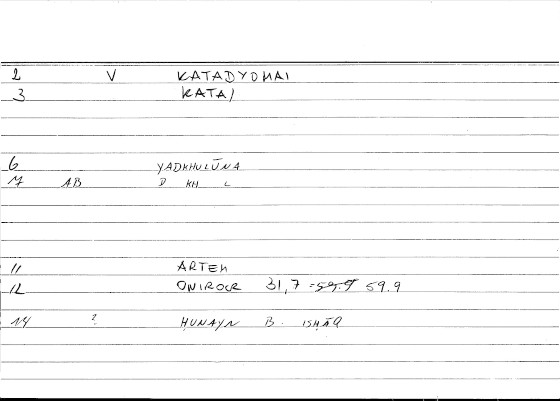 2 V KATADYOMAI
3 KATAI
6 YADKHULŪNA
7 AB D KH L
11 ARTEM
12 ONIROCR 31,7 = 59.9 59.9
14 ? ḤUNAYN B. ISḤĀQ